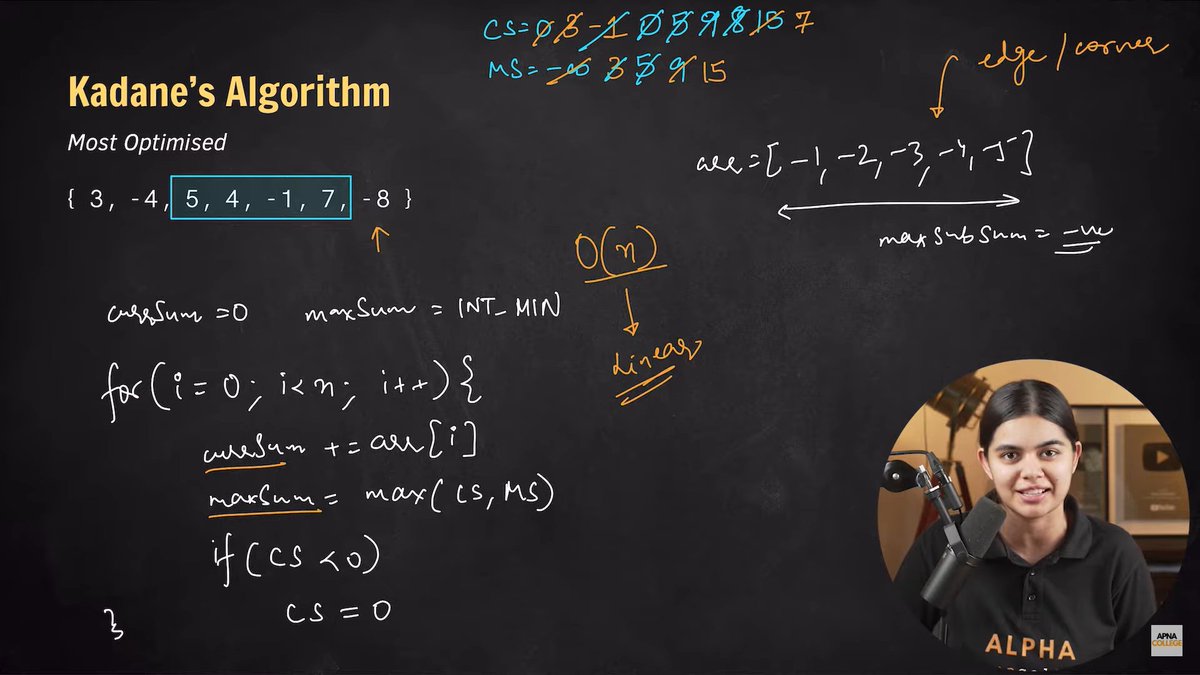 CS=0 3 -1 0 5 9 8 15 7
MS=-∞ 3 5 9 15
edge/corner
Kadane's Algorithm
Most Optimised
arr=[-1, -2, -3, -4, -5]
{ 3, -4, 5, 4, -1, 7, -8 }
maxSubSum = -ve
O(n)
Linear
currSum =0 maxSum = INT_MIN
for(i=0; i<n; i++){
currSum += arr[i]
maxSum = max(CS, MS)
if(CS <0)
CS = 0
}
ALPHA
APNA
COLLEGE